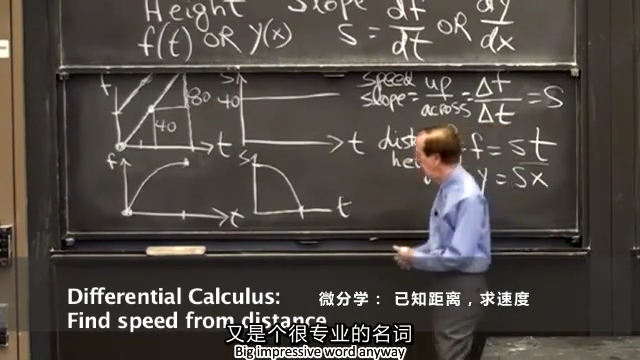 Height Slope
f(t) OR y(x) s = df/dt OR dy/dx
f 80 40 t
s 40 t
speed
slope = up/across = Δf/Δt = s
f = st
y = sx
f t
s t
Differential Calculus: 微分学： 已知距离，求速度
Find speed from distance
又是个很专业的名词
Big impressive word anyway